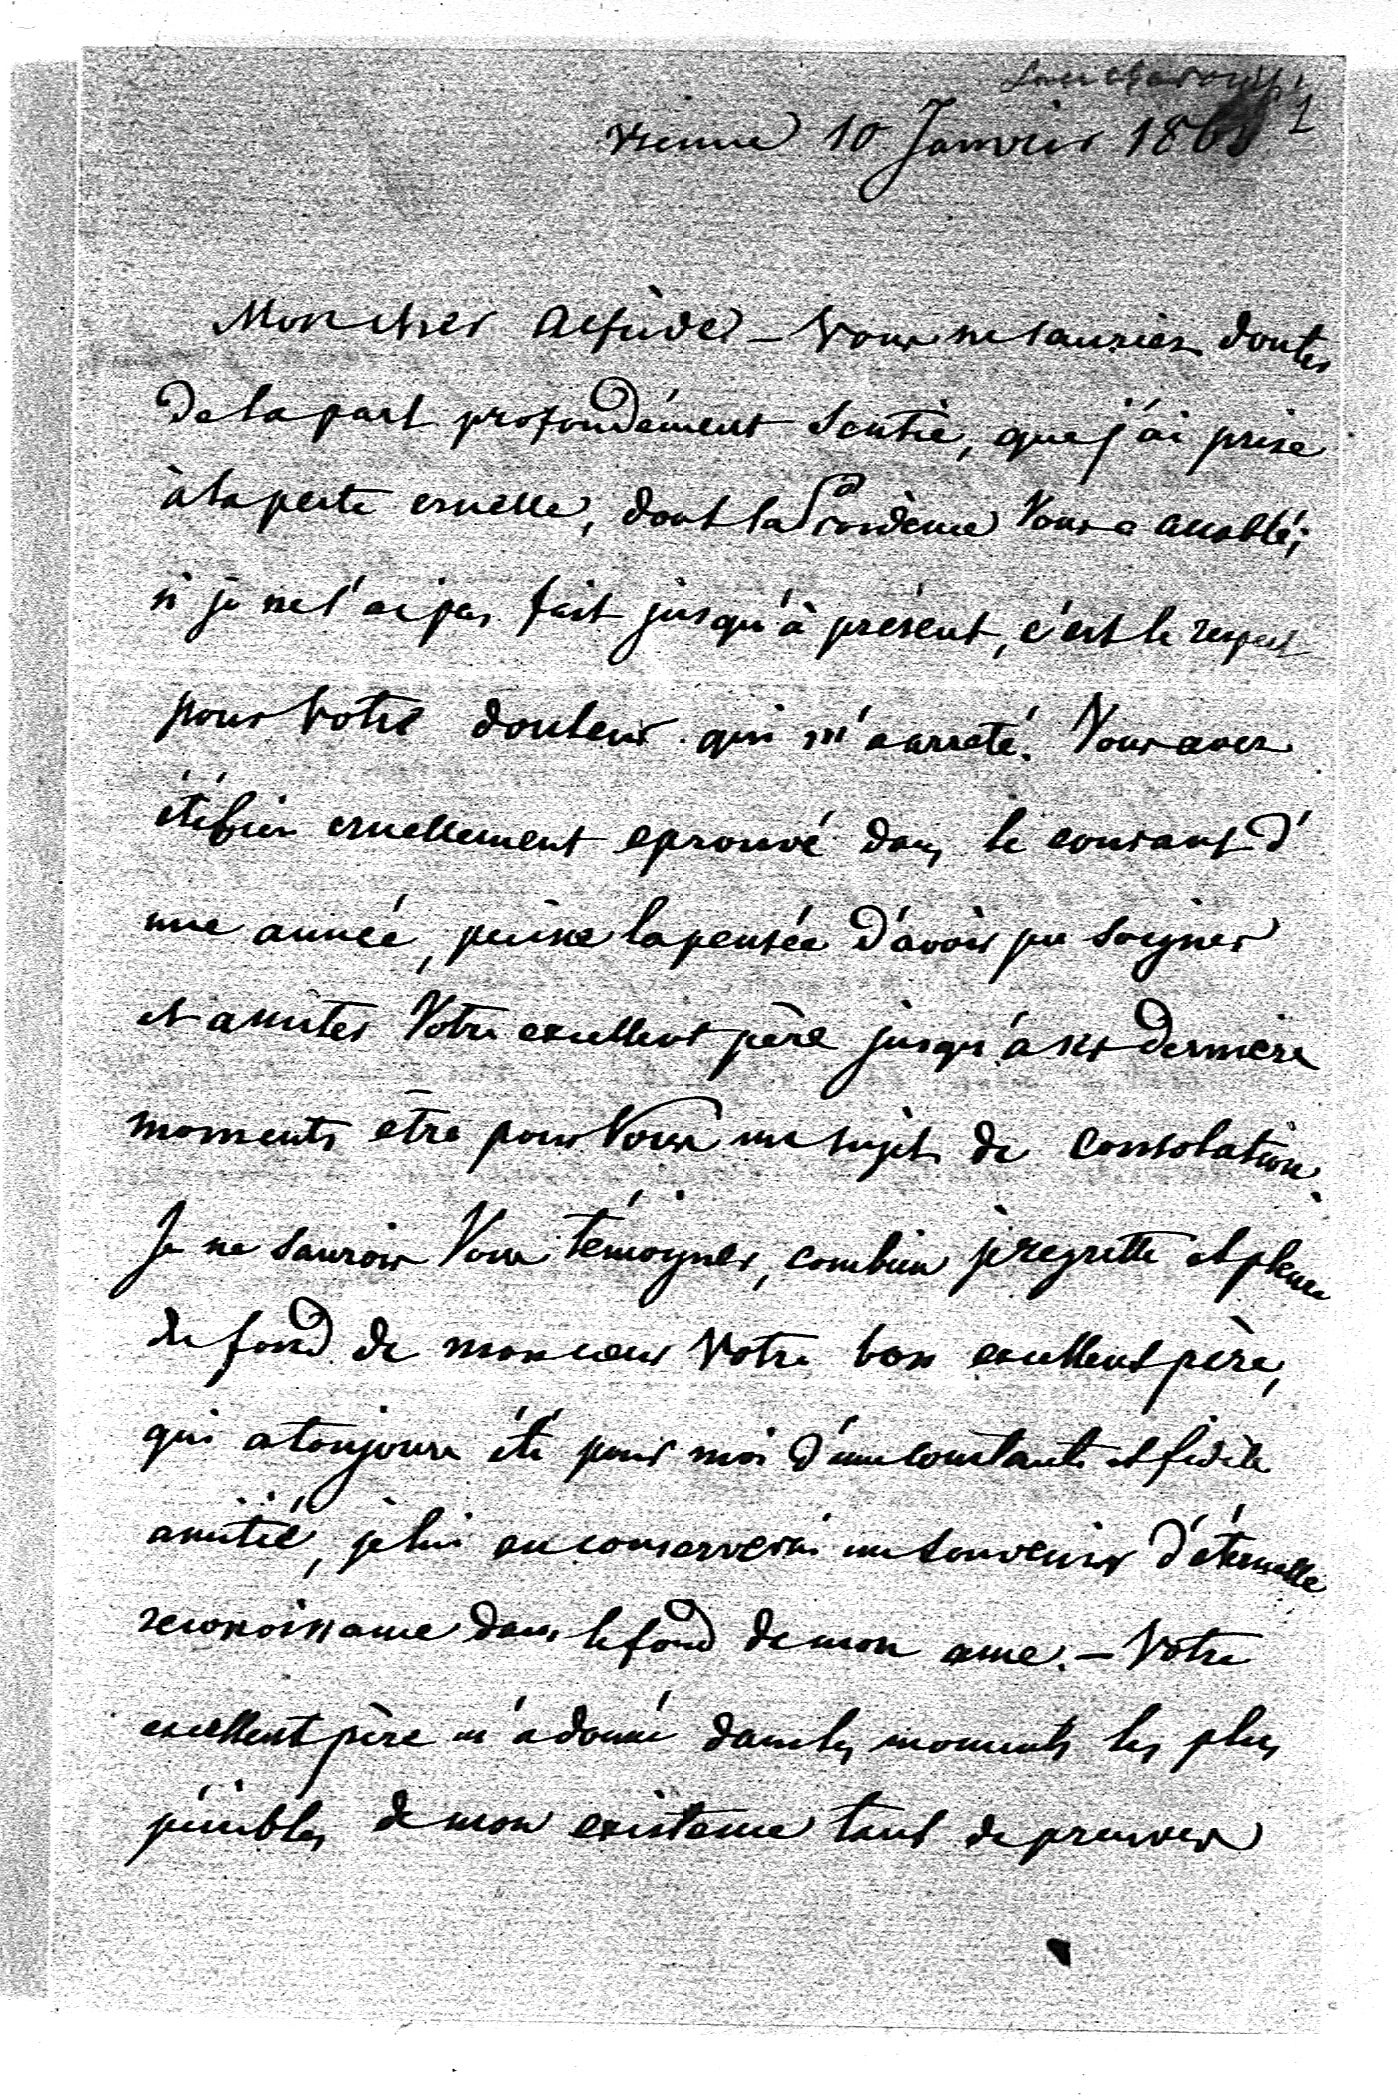 Vienne 10 Janvier 186
Mon cher Alfred – Vous ne sauriez douter
de la part profondément sentie, que j'ai prise
à la perte cruelle, dont la Providence Vous a accablé;
si je ne l'ai pas fait jusqu'à présent, c'est le respect
pour Votre douleur qui m'a arreté. Vous avez
été bien cruellement eprouvé dans le courant d'
une année, puisse la pensée d'avoir pu soigner
et assister Votre excellent père jusqu'à ses derniers
moments être pour Vous un sujet de consolation.
Je ne saurois Vous témoigner, combien je regrette et pleure
du fond de mon coeur Votre bon excellent père,
qui a toujours été pour moi d'une constante et fidèle
amitié, je lui en conserverai un souvenir d'éternelle
reconoissance dans le fond de mon ame. – Votre
excellent père m'a donné dans les moments les plus
pénibles de mon existence tant de preuves